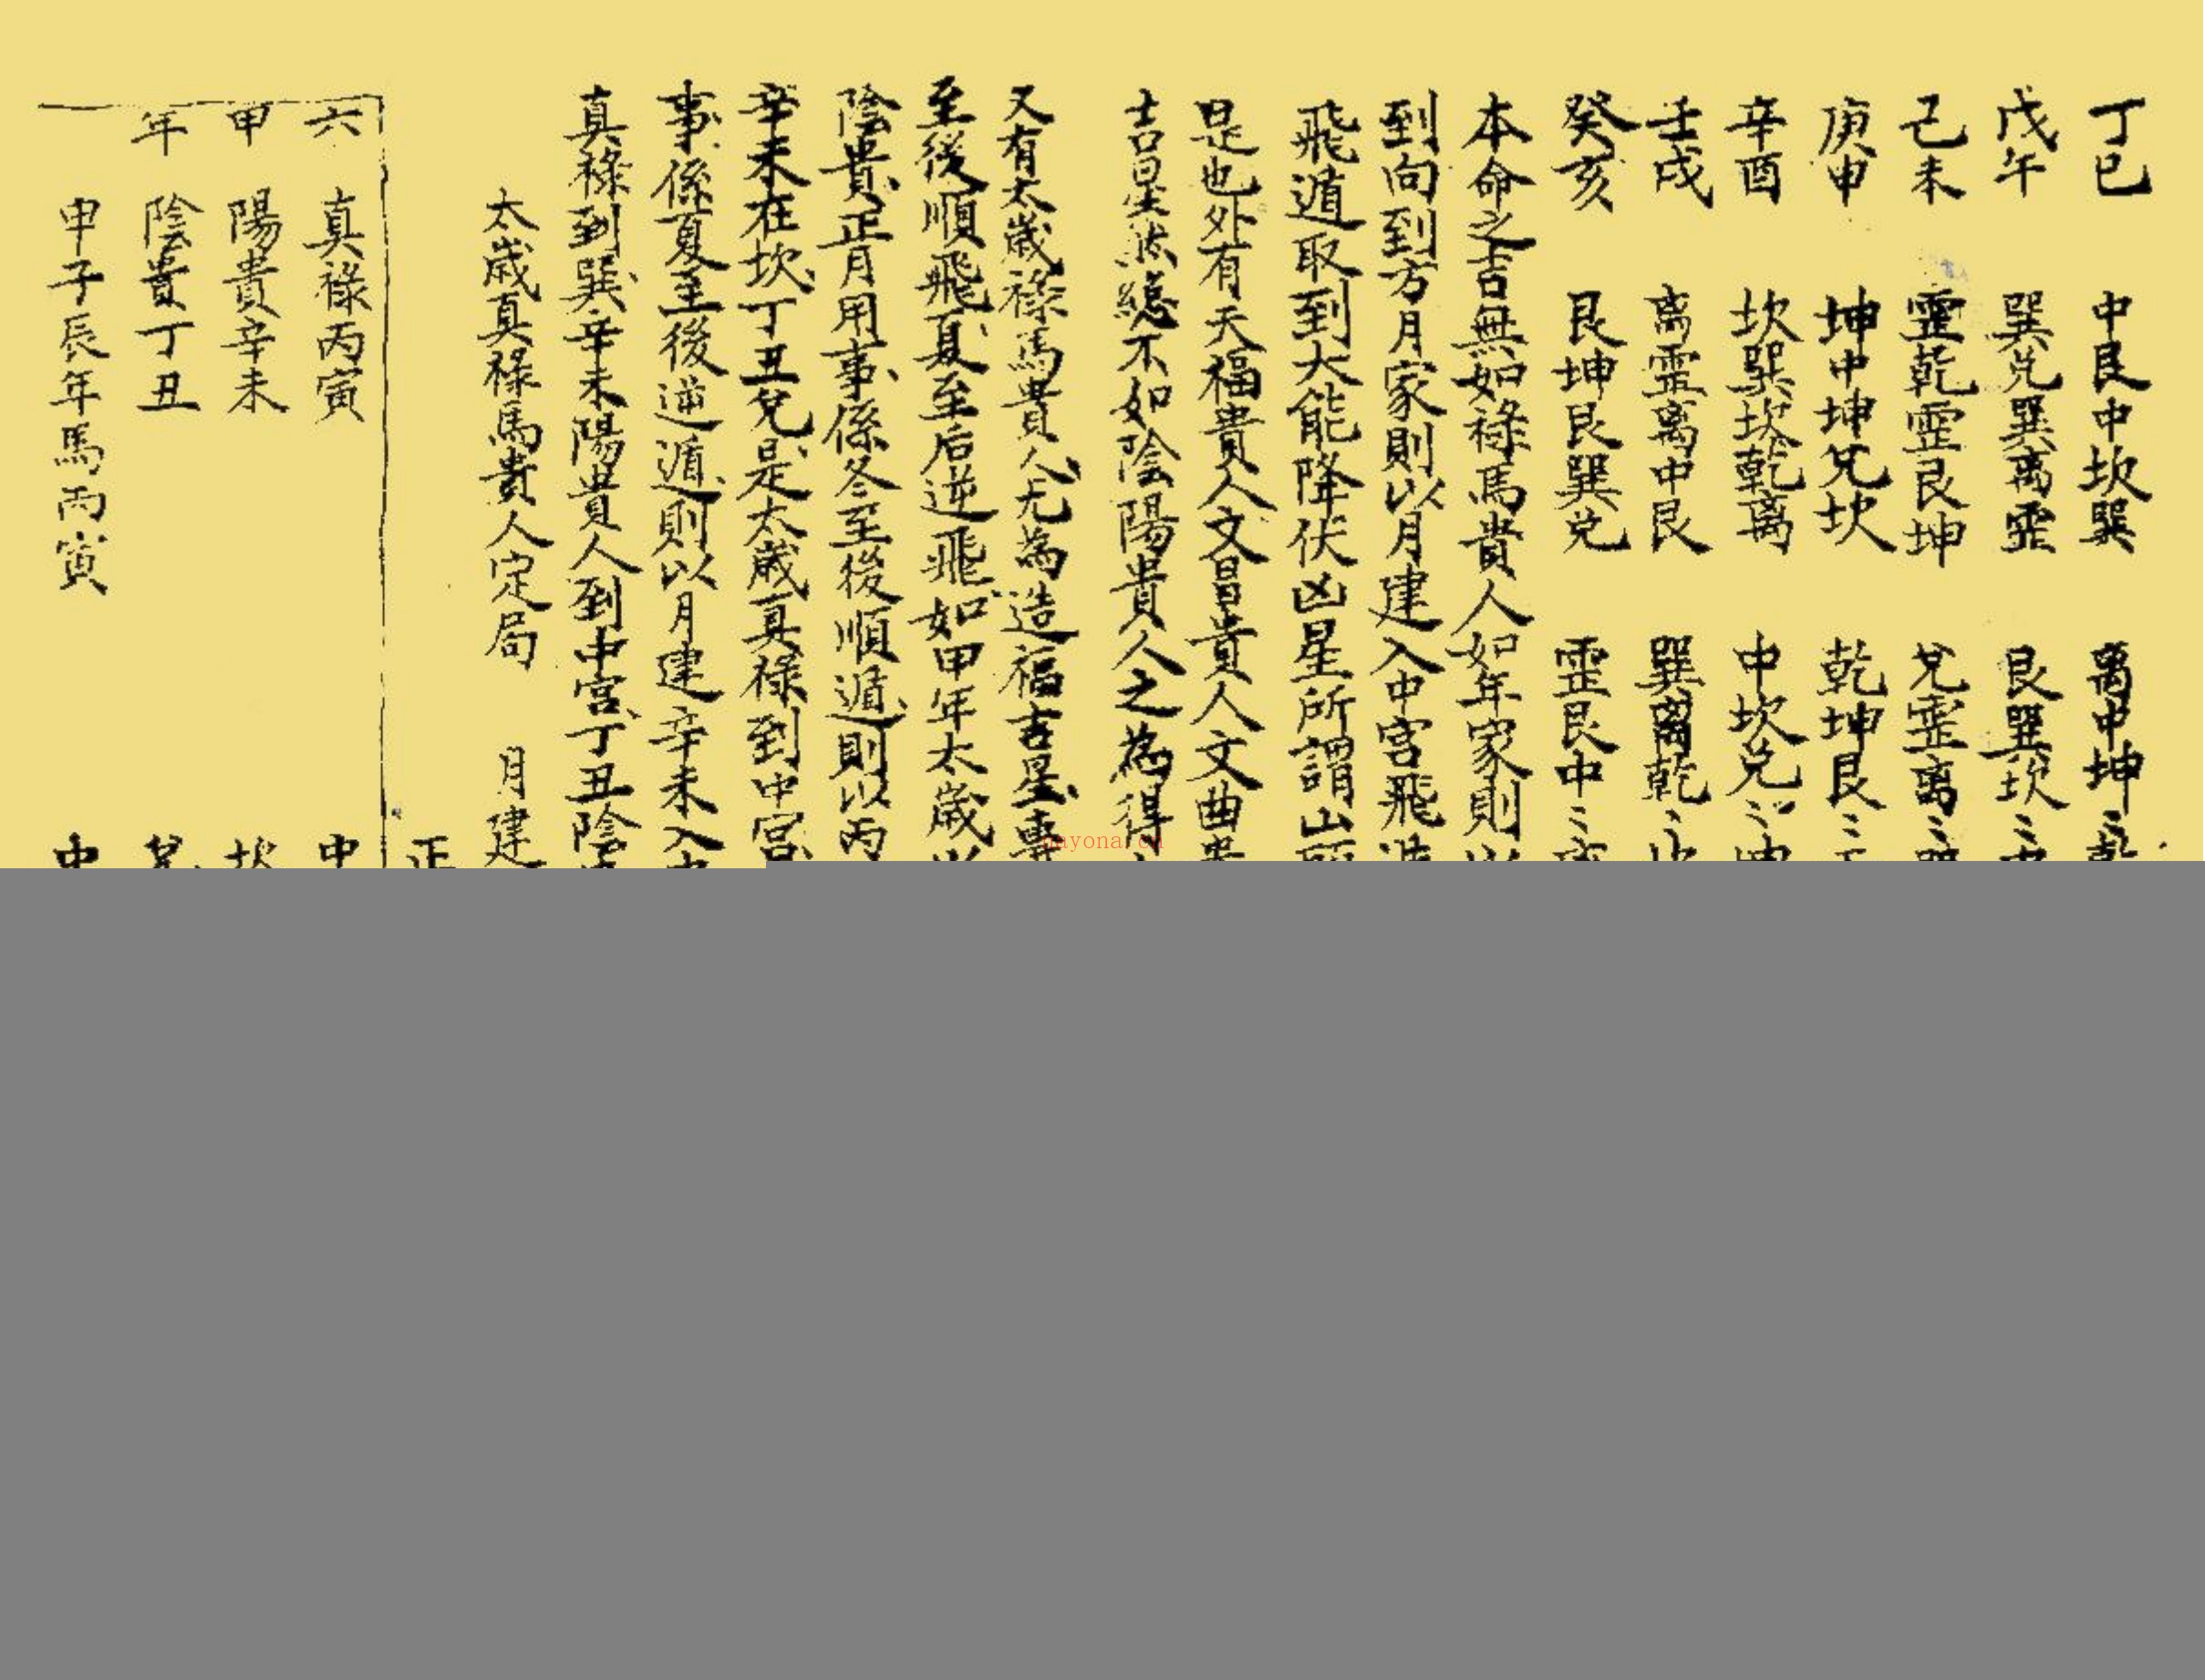 丁巳 中艮中坎巽 離中坤〻乾
戊午 巽兌巽离霊 艮巽坎〻
己未 霊乾霊艮坤 兌霊离〻
庚申 坤中坤兌坎 乾坤艮〻
辛酉 坎巽坎乾离 中坎兌〻
壬戌 离霊离中艮 巽离乾〻
癸亥 艮坤艮巽兌 霊艮中〻
本命之吉無如祿馬貴人如年家則以
到向到方月家則以月建入中宮飛
飛遁取到大能降伏凶星所謂山
是也外有天福貴人文昌貴人文曲貴
吉星然總不如陰陽貴人之為得
又有太歲祿馬貴人尤為造福吉星專
至後順飛夏至后逆飛如甲年太歲以
陰貴正月用事係冬至後順遁則以丙
辛未在坎丁丑兌是太歲真祿到中宮
事係夏至後逆遁則以月建辛未入中
真祿到巽辛未陽貴人到中宮丁丑陰
太歲真祿馬貴人定局 月建
正
六 真祿丙寅 中
甲 陽貴辛未 坎
年 陰貴丁丑 兌
申子辰年馬丙寅 中
nayona.cn